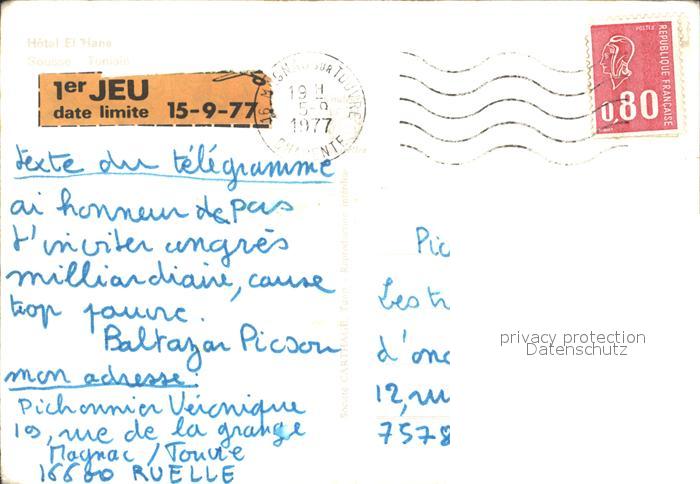 Hôtel El Hana
Sousse Tunisie
1er JEU
date limite 15-9-77
16 MAGNAC SUR TOUVRE
19 H
5-9
1977
CHARENTE
POSTES
REPUBLIQUE FRANÇAISE
0,80
texte du télégramme
ai honneur de pas
t'inviter congrès
milliardiaire, cause
trop pauvre.
Baltazar Picsou
mon adresse:
Pichonnier Véronique
19, rue de la grange
Magnac / Touvre
16600 RUELLE
Société CARTHAGE, Tunis - Reproduction interdite
Pic
Les tr
d'onc
12, ru
7578
privacy protection
Datenschutz